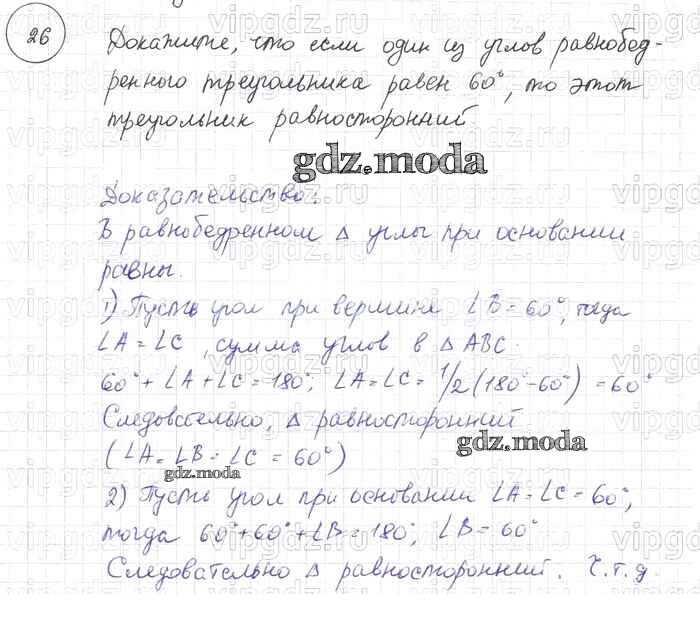 26
Докажите, что если один из углов равнобед-
ренного треугольника равен 60°, то этот
треугольник равносторонний
gdz.moda
Доказательство:
В равнобедренном Δ углы при основании
равны.
1) Пусть угол при вершине ∠B = 60°, тогда
∠A = ∠C, сумма углов в Δ ABC.
60° + ∠A + ∠C = 180°; ∠A = ∠C = 1/2 (180° - 60°) = 60°
Следовательно, Δ равносторонний
(∠A = ∠B = ∠C = 60°)
gdz.moda
gdz.moda
2) Пусть угол при основании ∠A = ∠C = 60°,
тогда 60° + 60° + ∠B = 180°, ∠B = 60°
Следовательно Δ равносторонний. Ч.т.д.